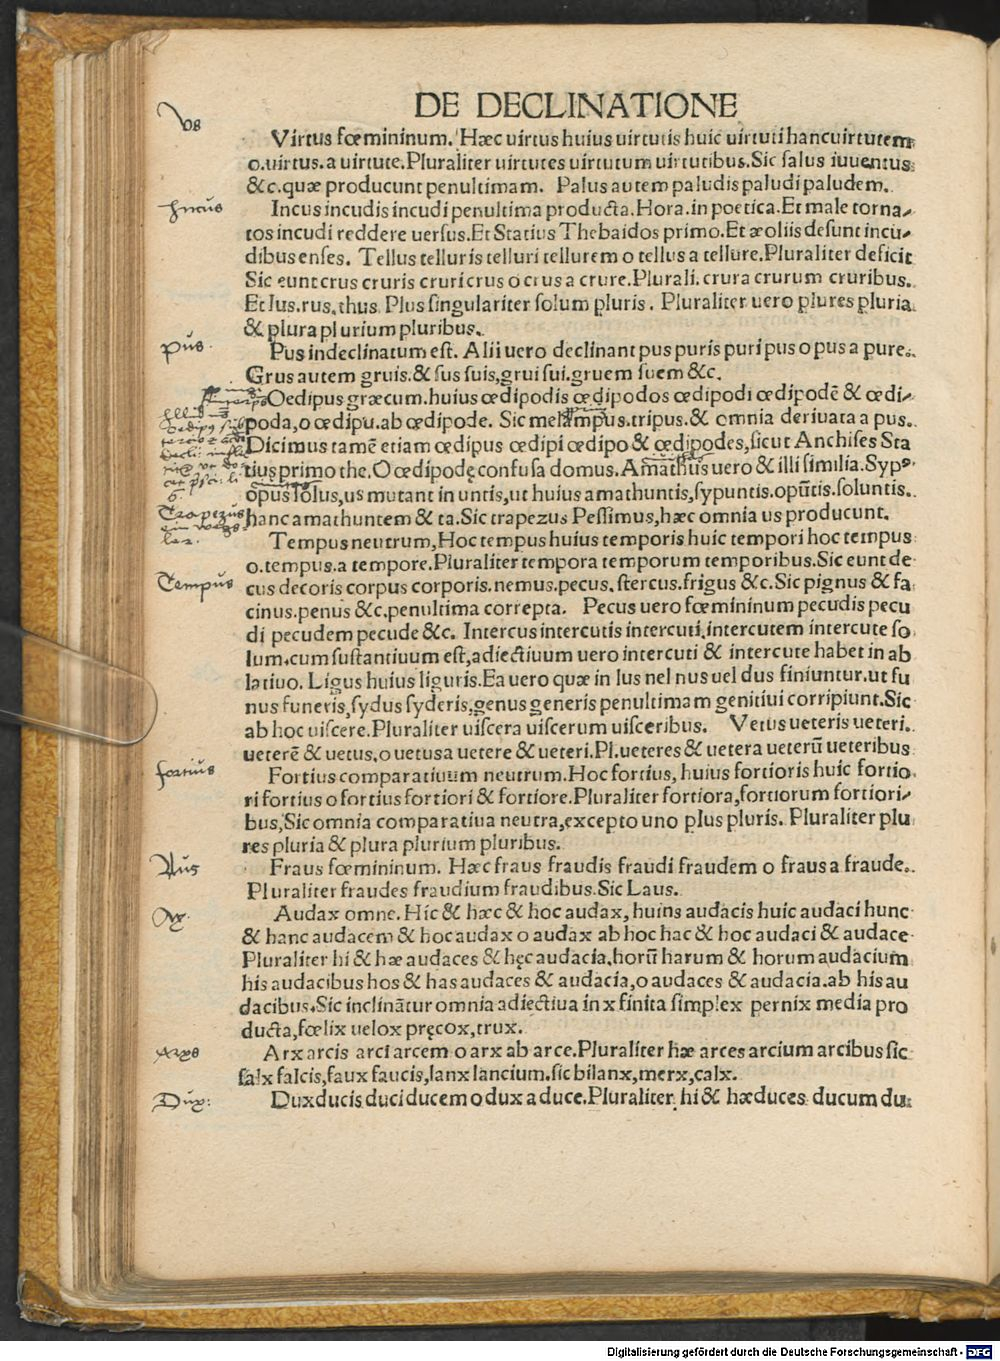 DE DECLINATIONE
Vs
Virtus fœmininum. Hæc uirtus huius uirtutis huic uirtuti hanc uirtutem
o.uirtus.a uirtute.Pluraliter uirtutes uirtutum uirtutibus.Sic salus iuuentus
&c.quæ producunt penultimam. Palus autem paludis paludi paludem.
Incus
Incus incudis incudi penultima producta.Hora.in poetica.Et male torna-
tos incudi reddere uersus.Et Statius Thebaidos primo.Et æoliis desunt incu-
dibus enses. Tellus telluris telluri tellurem o tellus a tellure.Pluraliter deficit
Sic eunt crus cruris cruri crus o crus a crure.Plurali.crura crurum cruribus.
Et Ius.rus.thus. Plus singulariter solum pluris. Pluraliter uero plures pluria
& plura plurium pluribus.
Pus.
Pus indeclinatum est. Alii uero declinant pus puris puri pus o pus a pure.
Grus autem gruis.& sus suis,grui sui.gruem suem &c.
Oedipus græcum.huius œdipodis œdipodos œdipodi œdipodē & œdi-
poda,o œdipu.ab œdipode. Sic melāmpus.tripus.& omnia deriuata a pus.
Dicimus tamē etiam œdipus œdipi œdipo & œdipodes,sicut Anchises Sta
tius primo the.O œdipodę confusa domus. Amāthus uero & illi similia.Syp
opus solus,us mutant in untis,ut huius amathuntis,sypuntis.opūtis.soluntis.
Trapezus
hanc amathuntem & ta.Sic trapezus Pessimus,hæc omnia us producunt.
Tempus neutrum,Hoc tempus huius temporis huic tempori hoc tempus
o.tempus.a tempore.Pluraliter tempora temporum temporibus.Sic eunt de-
Tempus
cus decoris corpus corporis.nemus.pecus.stercus.frigus &c.Sic pignus & fa
cinus.penus &c.penultima correpta. Pecus uero fœmininum pecudis pecu
di pecudem pecude &c. Intercus intercutis intercuti.intercutem intercute so
lum.cum sustantiuum est,adiectiuum uero intercuti & intercute habet in ab
latiuo. Ligus huius liguris.Ea uero quæ in lus nel nus uel dus finiuntur.ut fu
nus funeris,sydus syderis,genus generis penultimam genitiui corripiunt.Sic
ab hoc uiscere.Pluraliter uiscera uiscerum uisceribus. Vetus ueteris ueteri.
ueterē & uetus.o uetus a uetere & ueteri.Pl.ueteres & uetera ueterū ueteribus
fortius
Fortius comparatiuum neutrum.Hoc fortius, huius fortioris huic fortio
ri fortius o fortius fortiori & fortiore.Pluraliter fortiora,fortiorum fortiori-
bus,Sic omnia comparatiua neutra,excepto uno plus pluris. Pluraliter plu
res pluria & plura plurium pluribus.
Aus
Fraus fœmininum. Hæc fraus fraudis fraudi fraudem o fraus a fraude.
Pluraliter fraudes fraudium fraudibus.Sic Laus.
Ax.
Audax omne.Hic & hæc & hoc audax, huins audacis huic audaci hunc
& hanc audacem & hoc audax o audax ab hoc hac & hoc audaci & audace
Pluraliter hi & hæ audaces & hęc audacia.horū harum & horum audacium
his audacibus hos & has audaces & audacia,o audaces & audacia.ab his au
dacibus.Sic inclinātur omnia adiectiua in x finita simplex pernix media pro
ducta,fœlix uelox pręcox,trux.
Arx
Arx arcis arci arcem o arx ab arce.Pluraliter hæ arces arcium arcibus sic
falx falcis,faux faucis,lanx lancium.sic bilanx,merx,calx.
Dux:
Dux ducis duci ducem o dux a duce.Pluraliter hi & hæ duces ducum du
Digitalisierung gefördert durch die Deutsche Forschungsgemeinschaft - DFG